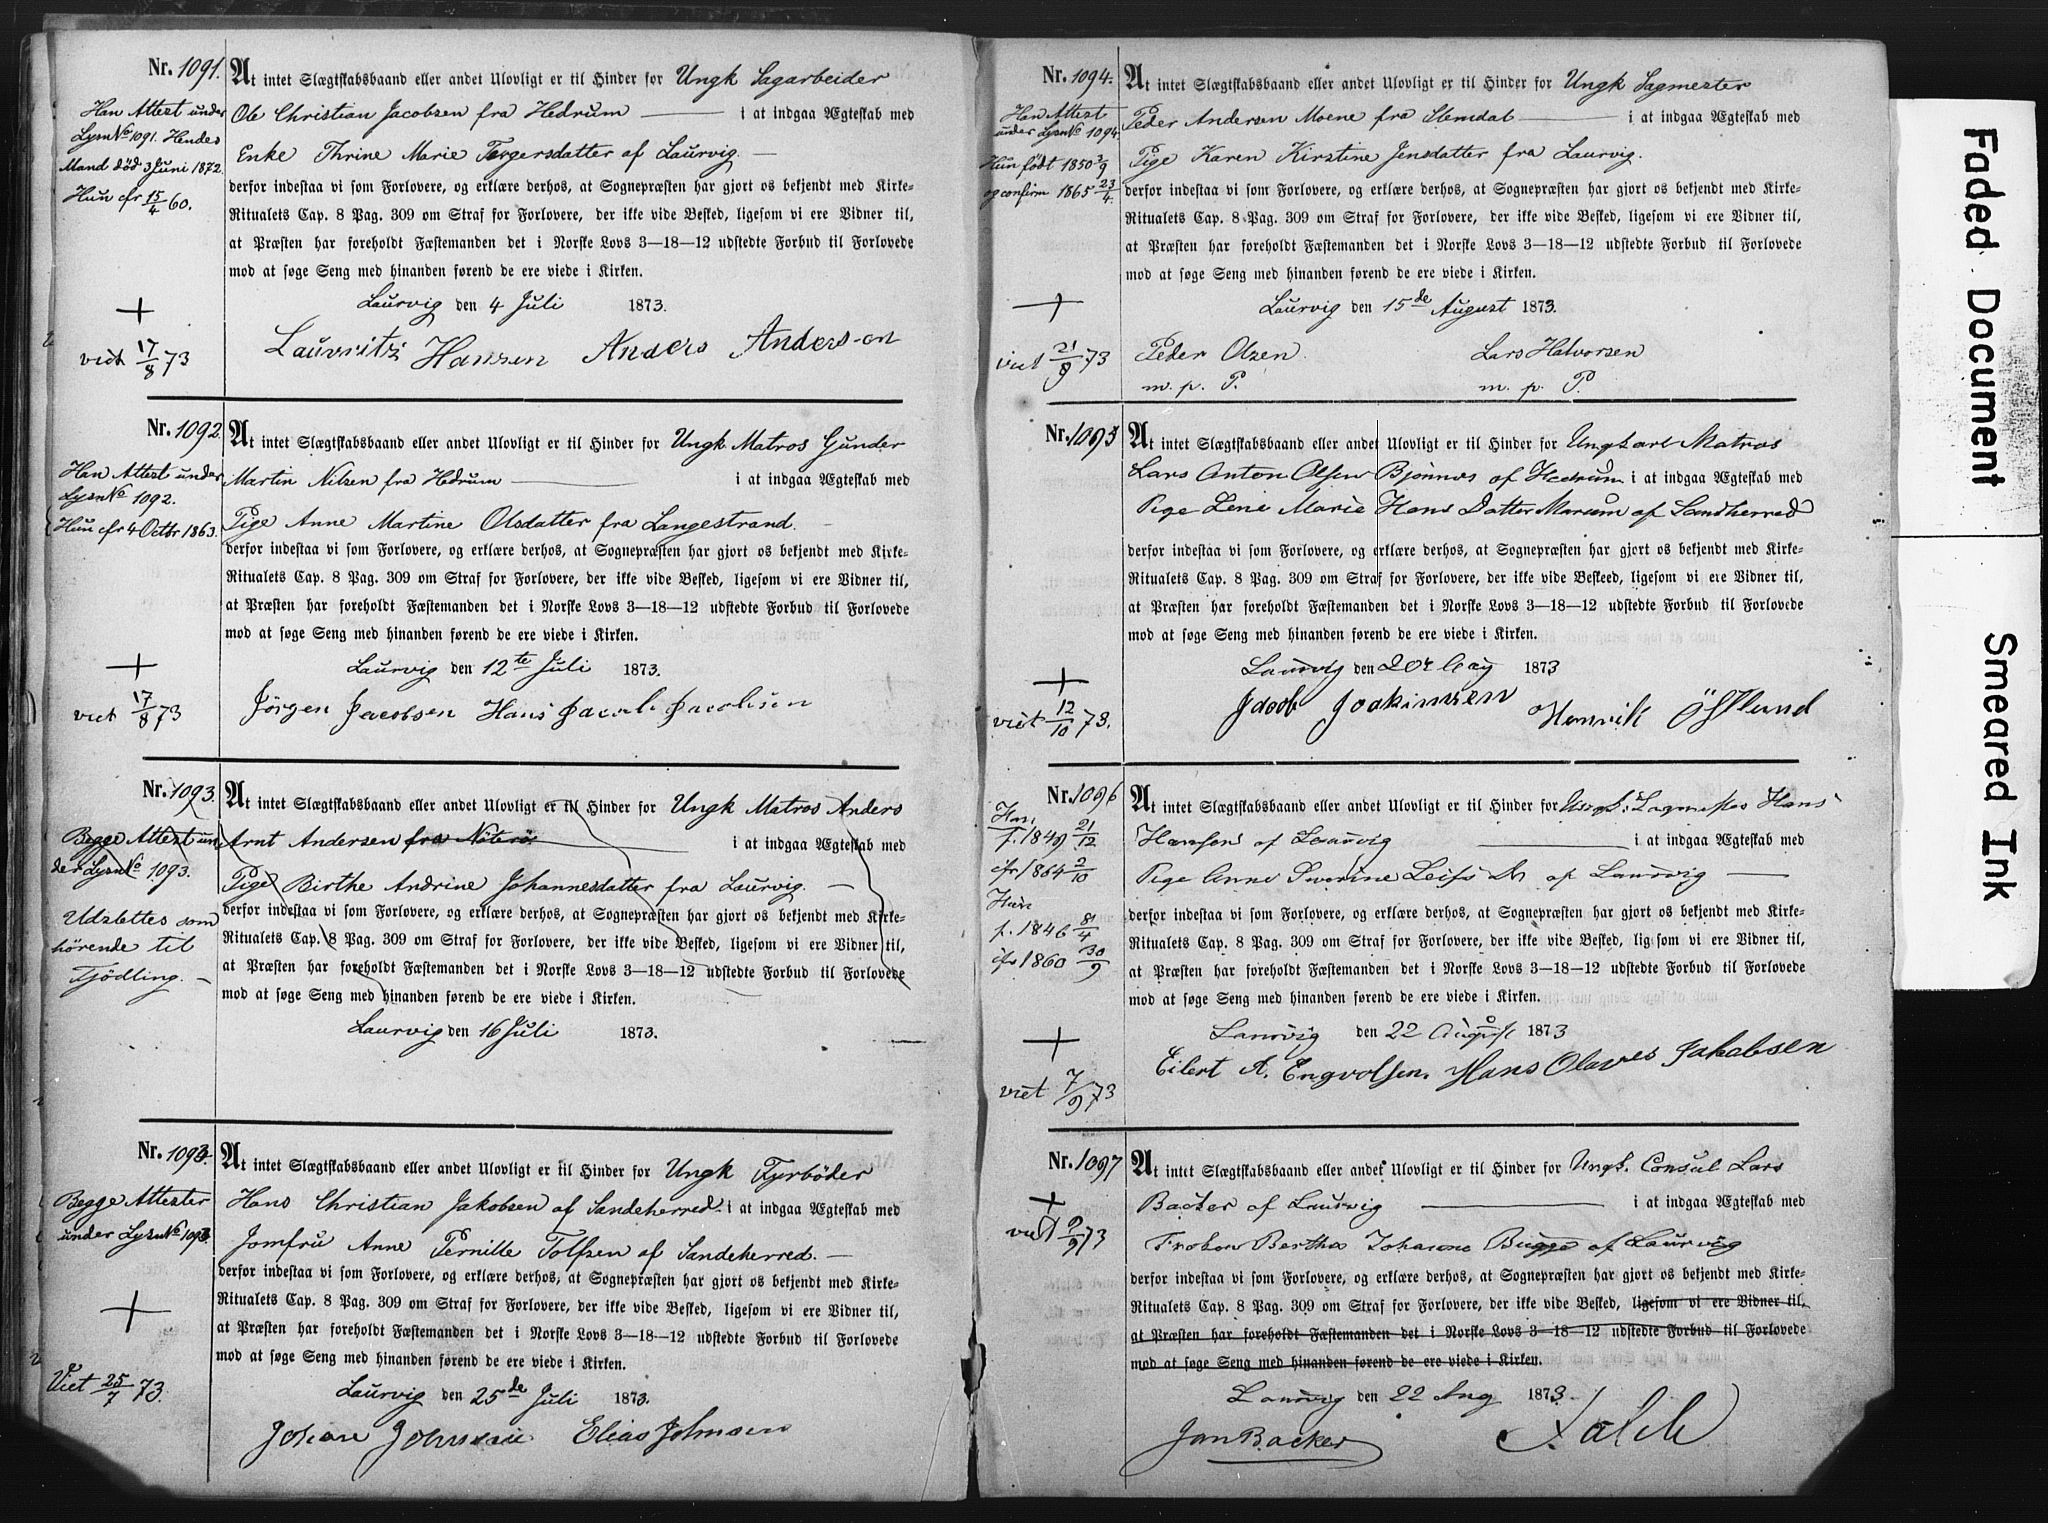 Nr. 1091.
At intet Slægtskabsbaand eller andet Ulovligt er til Hinder for Ungk Sagarbeider
Ole Christian Jacobsen fra Hedrum — i at indgaa Ægteskab med
Enke Thrine Marie Tergersdatter af Laurvig. —
derfor indestaa vi som Forlovere, og erklære derhos, at Sognepræsten har gjort os bekjendt med Kirke-
Ritualets Cap. 8 Pag. 309 om Straf for Forlovere, der ikke vide Besked, ligesom vi ere Vidner til,
at Præsten har foreholdt Fæstemanden det i Norske Lovs 3—18—12 udstedte Forbud til Forlovede
mod at søge Seng med hinanden førend de ere viede i Kirken.
Laurvig den 4 Juli 1873.
Lauvritz Hansen Anders Anderson
Han Attest under
Lysn No 1091. Hendes
Mand død 3 Juni 1872.
Hun cfr 15/4 60.
+
viet 17/8 73
Nr. 1092
At intet Slægtskabsbaand eller andet Ulovligt er til Hinder for Ungk Matros Gunder
Martin Nilsen fra Hedrum — i at indgaa Ægteskab med
Pige Anne Martine Olsdatter fra Langestrand. —
derfor indestaa vi som Forlovere, og erklære derhos, at Sognepræsten har gjort os bekjendt med Kirke-
Ritualets Cap. 8 Pag. 309 om Straf for Forlovere, der ikke vide Besked, ligesom vi ere Vidner til,
at Præsten har foreholdt Fæstemanden det i Norske Lovs 3—18—12 udstedte Forbud til Forlovede
mod at søge Seng med hinanden førend de ere viede i Kirken.
Laurvig den 12te Juli 1873.
Jörgen Jacobsen Hans Jacob Jacobsen
Han Attest under
Lysn No 1092.
Hun cfr 4 Octbr 1863.
+
viet 17/8 73
Nr. 1093.
At intet Slægtskabsbaand eller andet Ulovligt er til Hinder for Ungk Matros Anders
Arnt Andersen fra Nöterö — i at indgaa Ægteskab med
Pige Birthe Andrine Johannesdatter fra Laurvig. —
derfor indestaa vi som Forlovere, og erklære derhos, at Sognepræsten har gjort os bekjendt med Kirke-
Ritualets Cap. 8 Pag. 309 om Straf for Forlovere, der ikke vide Besked, ligesom vi ere Vidner til,
at Præsten har foreholdt Fæstemanden det i Norske Lovs 3—18—12 udstedte Forbud til Forlovede
mod at søge Seng med hinanden førend de ere viede i Kirken.
Laurvig den 16 Juli 1873.
Begge Attest un
der Lysn No 1093.
Udslettes som
hörende til
Tjödling. —
Nr. 1093.
At intet Slægtskabsbaand eller andet Ulovligt er til Hinder for Ungk Fyrböder
Hans Christian Jakobsen af Sandeherred i at indgaa Ægteskab med
Jomfru Anne Pernille Tolfsen af Sandeherred. —
derfor indestaa vi som Forlovere, og erklære derhos, at Sognepræsten har gjort os bekjendt med Kirke-
Ritualets Cap. 8 Pag. 309 om Straf for Forlovere, der ikke vide Besked, ligesom vi ere Vidner til,
at Præsten har foreholdt Fæstemanden det i Norske Lovs 3—18—12 udstedte Forbud til Forlovede
mod at søge Seng med hinanden førend de ere viede i Kirken.
Laurvig den 25de Juli 1873.
Johan Johnsen Elias Johnsen
Begge Attester
under Lysn No 1093
+
Viet 25/7 73.
Nr. 1094.
At intet Slægtskabsbaand eller andet Ulovligt er til Hinder for Ungk Sagmester
Peder Andersen Moene fra Slemdal — i at indgaa Ægteskab med
Pige Karen Kirstine Jensdatter fra Laurvig.
derfor indestaa vi som Forlovere, og erklære derhos, at Sognepræsten har gjort os bekjendt med Kirke-
Ritualets Cap. 8 Pag. 309 om Straf for Forlovere, der ikke vide Besked, ligesom vi ere Vidner til,
at Præsten har foreholdt Fæstemanden det i Norske Lovs 3—18—12 udstedte Forbud til Forlovede
mod at søge Seng med hinanden førend de ere viede i Kirken.
Laurvig den 15de August 1873.
Peder Olzen. Lars Halvorsen
m. p. P. m. p. P.
Han Attest
under Lysn No 1094.
Hun født 1850 3/9
og confirm 1865 23/4.
+
viet 21/9 73
Nr. 1095
At intet Slægtskabsbaand eller andet Ulovligt er til Hinder for Ungkarl Matros
Lars Anton Olsen Bjønnes af Hedrum i at indgaa Ægteskab med
Pige Lene Marie Hans Datter Marum af Sandherred
derfor indestaa vi som Forlovere, og erklære derhos, at Sognepræsten har gjort os bekjendt med Kirke-
Ritualets Cap. 8 Pag. 309 om Straf for Forlovere, der ikke vide Beskeed, ligesom vi ere Vidner til,
at Præsten har foreholdt Fæstemanden det i Norske Lovs 3—18—12 udstedte Forbud til Forlovede
mod at søge Seng med hinanden førend de ere viede i Kirken.
Laurvig den 20 1873
Jacob Joakimsen Henrik Östlund
+
viet 12/10 73.
Nr. 1096
At intet Slægtskabsbaand eller andet Ulovligt er til Hinder for Ungk. Hans
Hansen af Laurvig — i at indgaa Ægteskab med
Pige Anne Severine Leifs Dr af Laurvig —
derfor indestaa vi som Forlovere, og erklære derhos, at Sognepræsten har gjort os bekjendt med Kirke-
Ritualets Cap. 8 Pag. 309 om Straf for Forlovere, der ikke vide Besked, ligesom vi ere Vidner til,
at Præsten har foreholdt Fæstemanden det i Norske Lovs 3—18—12 udstedte Forbud til Forlovede
mod at søge Seng med hinanden førend de ere viede i Kirken.
Laurvig den 22 August 1873
Eilert A. Engvolsen. Hans Olaves Jakobsen
Han
f. 1849 21/12
cfr 1864 2/10
Hun
f. 1846 8/4
cfr 1860 30/9
+
viet 7/9 73
Nr. 1097
At intet Slægtskabsbaand eller andet Ulovligt er til Hinder for Ungk. Consul Lars
Backer af Laurvig — i at indgaa Ægteskab med
Frøken Bertha Johanne Bugge af Laurvig
derfor indestaa vi som Forlovere, og erklære derhos, at Sognepræsten har gjort os bekjendt med Kirke-
Ritualets Cap. 8 Pag. 309 om Straf for Forlovere, der ikke vide Besked, ligesom vi ere Vidner til,
at Præsten har foreholdt Fæstemanden det i Norske Lovs 3—18—12 udstedte Forbud til Forlovede
mod at søge Seng med hinanden førend de ere viede i Kirken.
Laurvig den 22 Aug 1873.
Jan Backer
+
viet 2/9 73
Faded Document
Smeared Ink